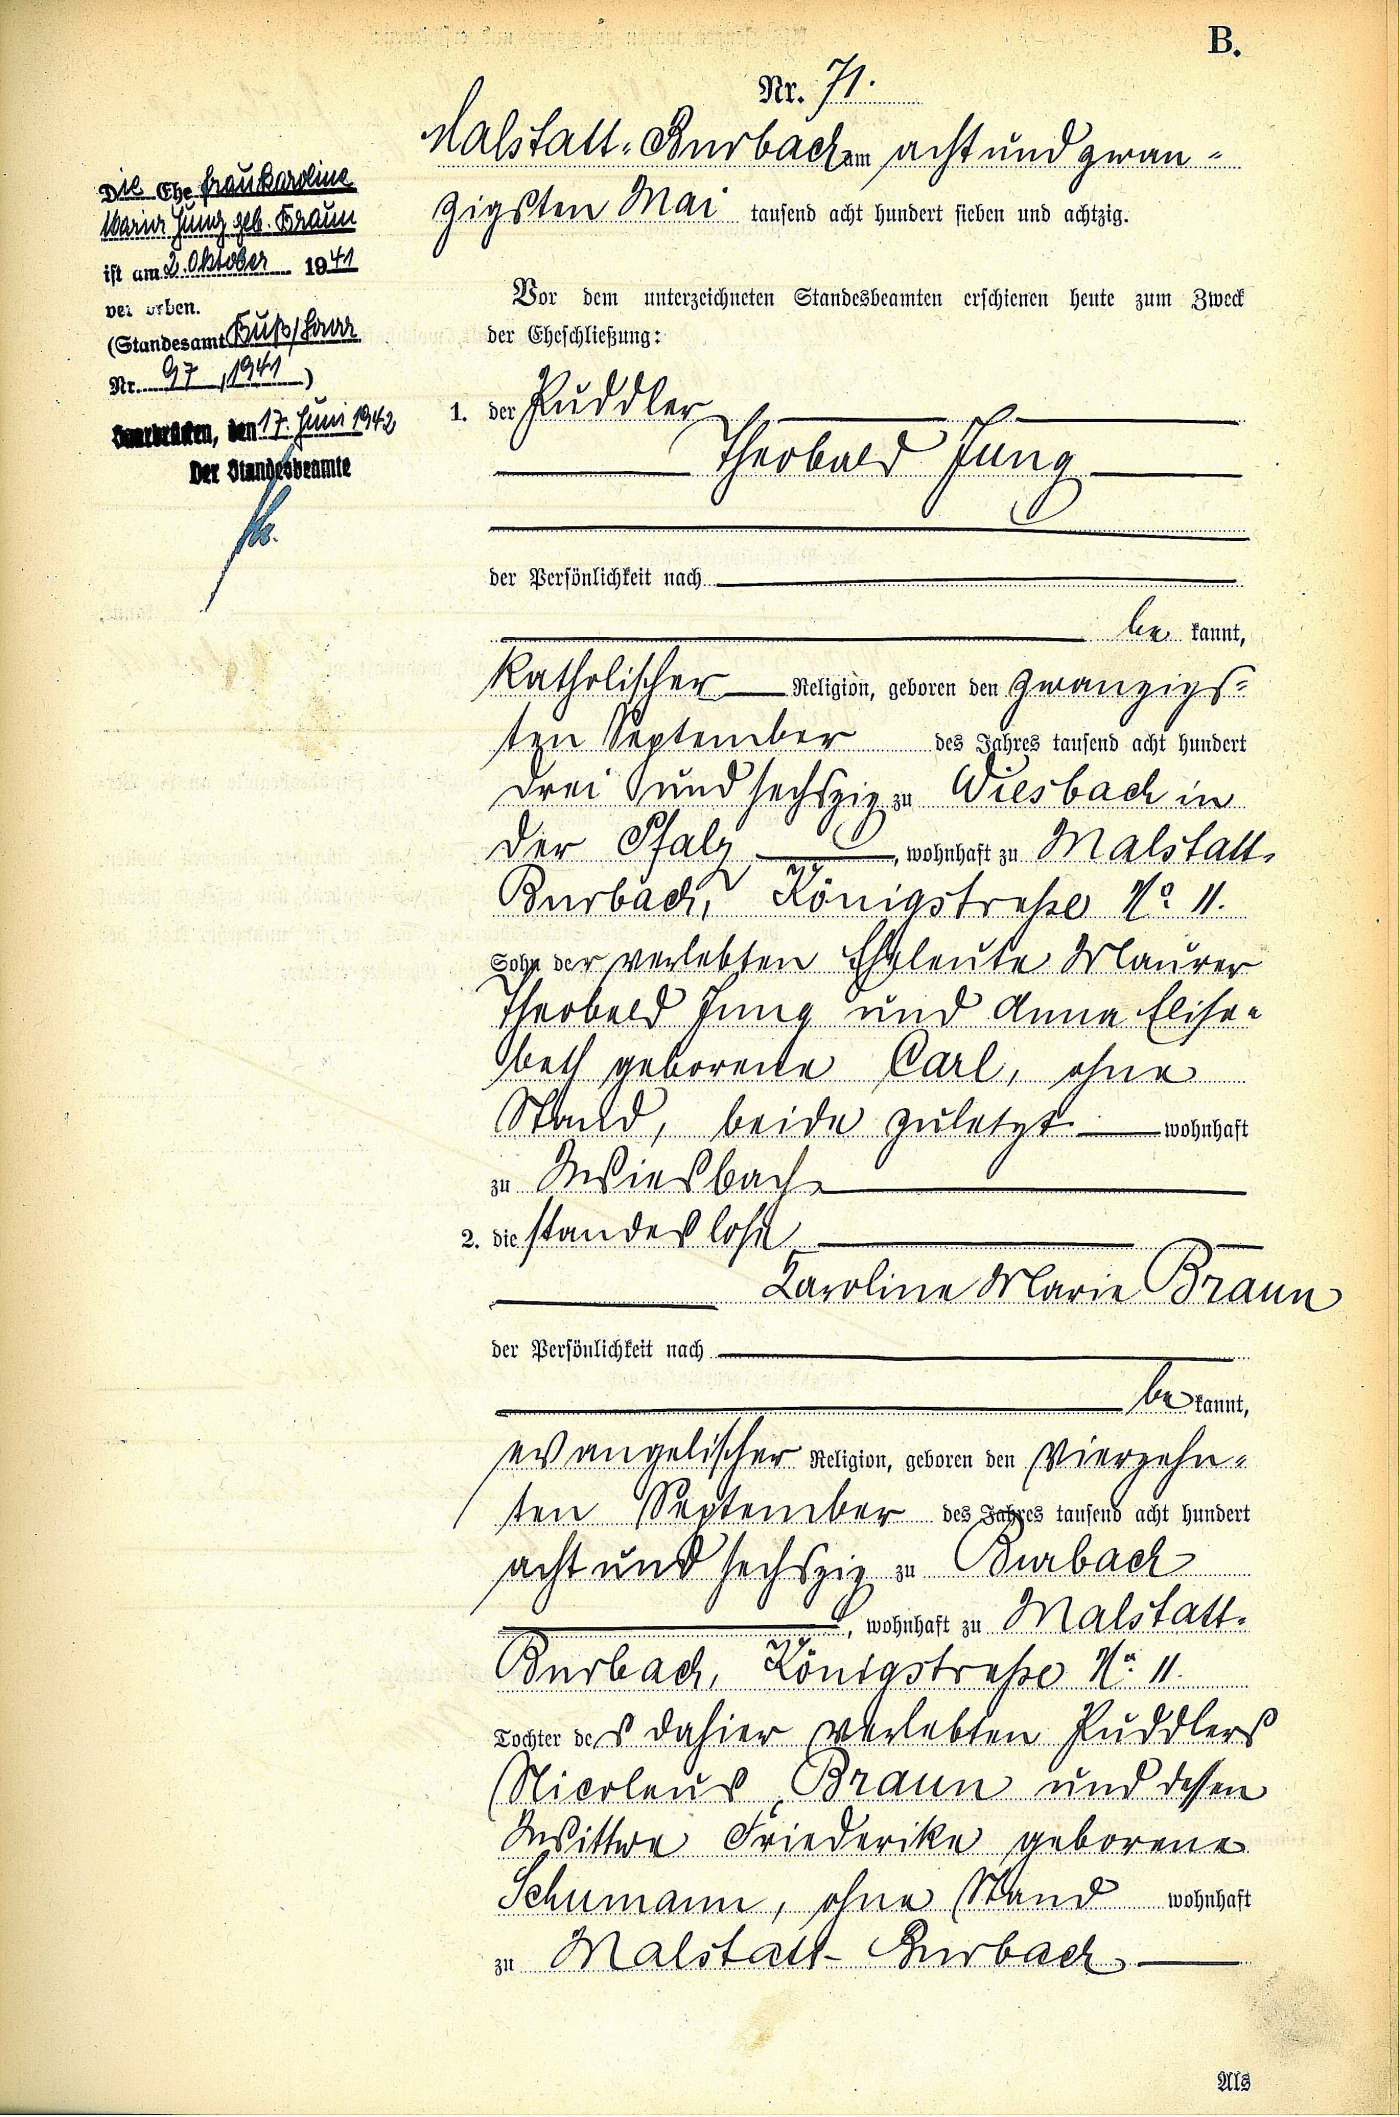 B.
Nr. 71.
Malstatt-Burbach am acht und zwan-
zigsten Mai tausend acht hundert sieben und achtzig.
Die Ehefrau Karoline
Maria Jung geb. Braun
ist am 2. Oktober 1941
verstorben.
(Standesamt Buß/Saar
Nr. 97, 1941)
Saarbrücken, den 17. Juni 1942
Der Standesbeamte
Vor dem unterzeichneten Standesbeamten erschienen heute zum Zweck
der Eheschließung:
1. der Puddler
Theobald Jung
der Persönlichkeit nach
be kannt,
katholischer Religion, geboren den zwanzigs-
ten September des Jahres tausend acht hundert
drei und sechszig zu Wiesbach in
der Pfalz, wohnhaft zu Malstatt-
Burbach, Königstraße No 11.
Sohn der verlebten Eheleute Maurer
Theobald Jung und Anna Elisa-
beth geborene Carl, ohne
Stand, beide zuletzt wohnhaft
zu Wiesbach
2. die standeslose
Karoline Marie Braun
der Persönlichkeit nach
be kannt,
evangelischer Religion, geboren den vierzehn-
ten September des Jahres tausend acht hundert
acht und sechszig zu Burbach
, wohnhaft zu Malstatt-
Burbach, Königstraße No. 11.
Tochter des dahier verlebten Puddlers
Nicolaus Braun und dessen
Wittwe Friederike geborene
Schumann, ohne Stand wohnhaft
zu Malstatt-Burbach
Als